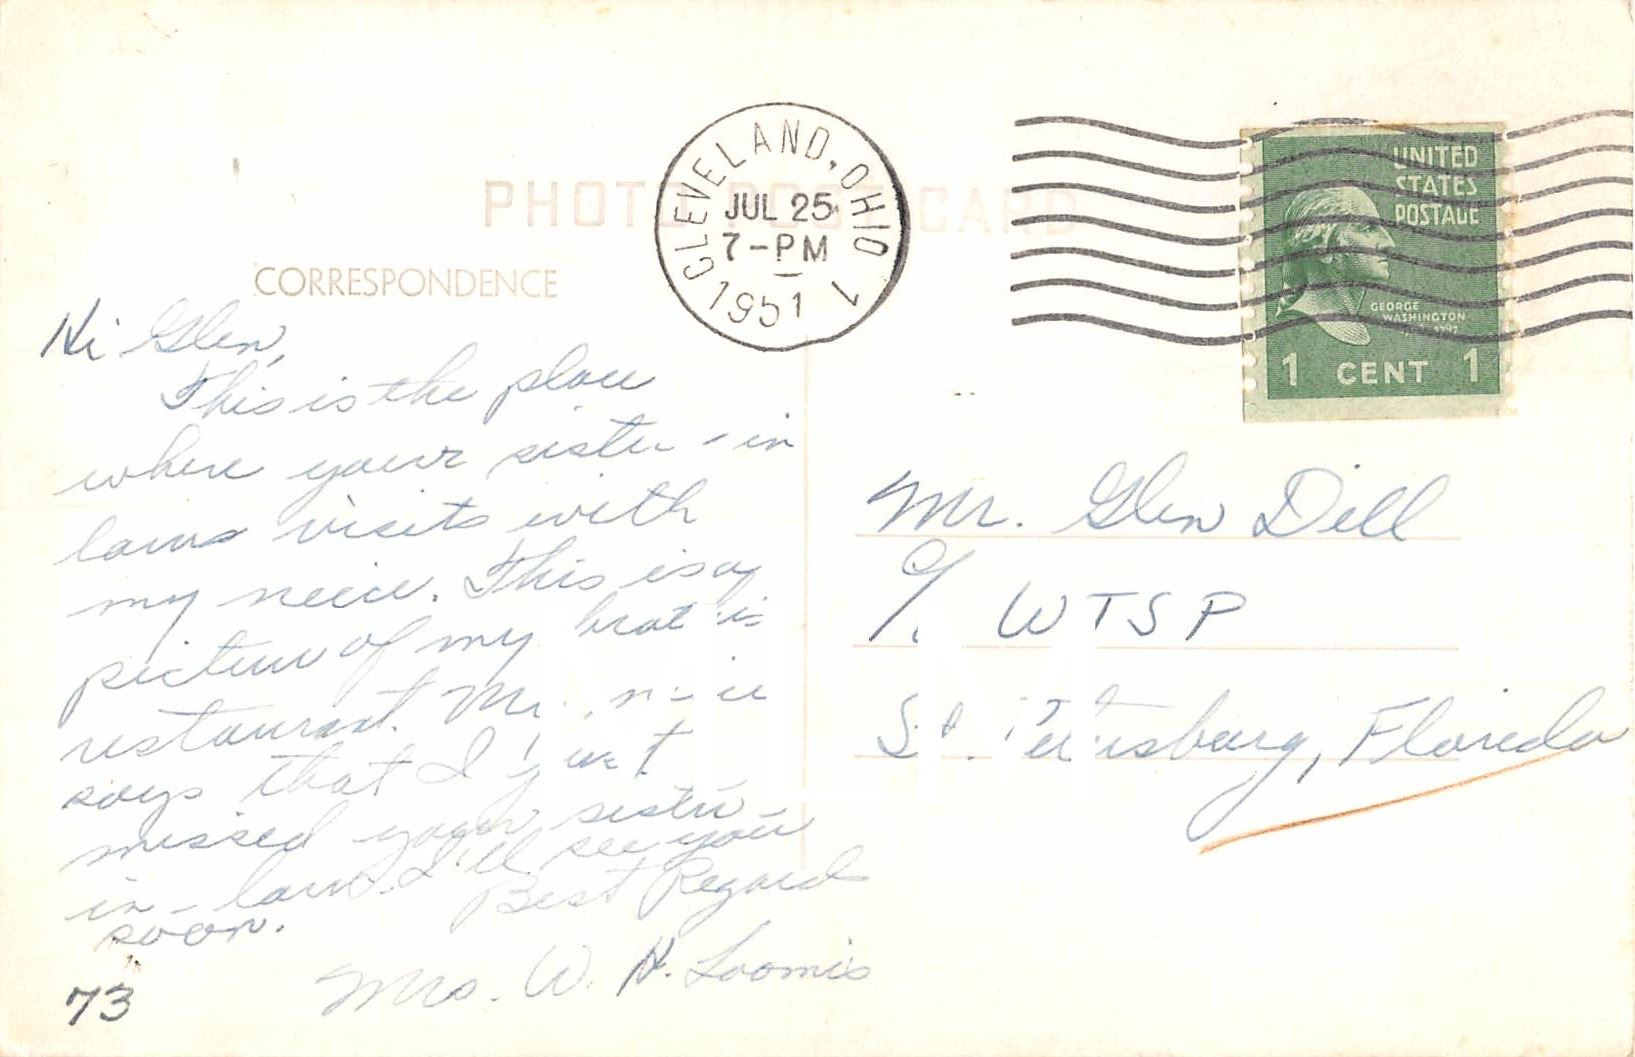 PHOTO POST CARD
CLEVELAND, OHIO 1
JUL 25
7-PM
1951
UNITED
STATES
POSTAGE
GEORGE
WASHINGTON
1 CENT 1
CORRESPONDENCE
Hi Glen,
This is the place
where your sister-in
laws visits with
my neice. This is a
picture of my
restaurant. My
says that I just
missed your sister-
in-law. I'll see you
soon.
Best Regards
Mrs. W. H. Loomis
73
Mr. Glen Dill
c/. WTSP
St. Petersburg, Florida